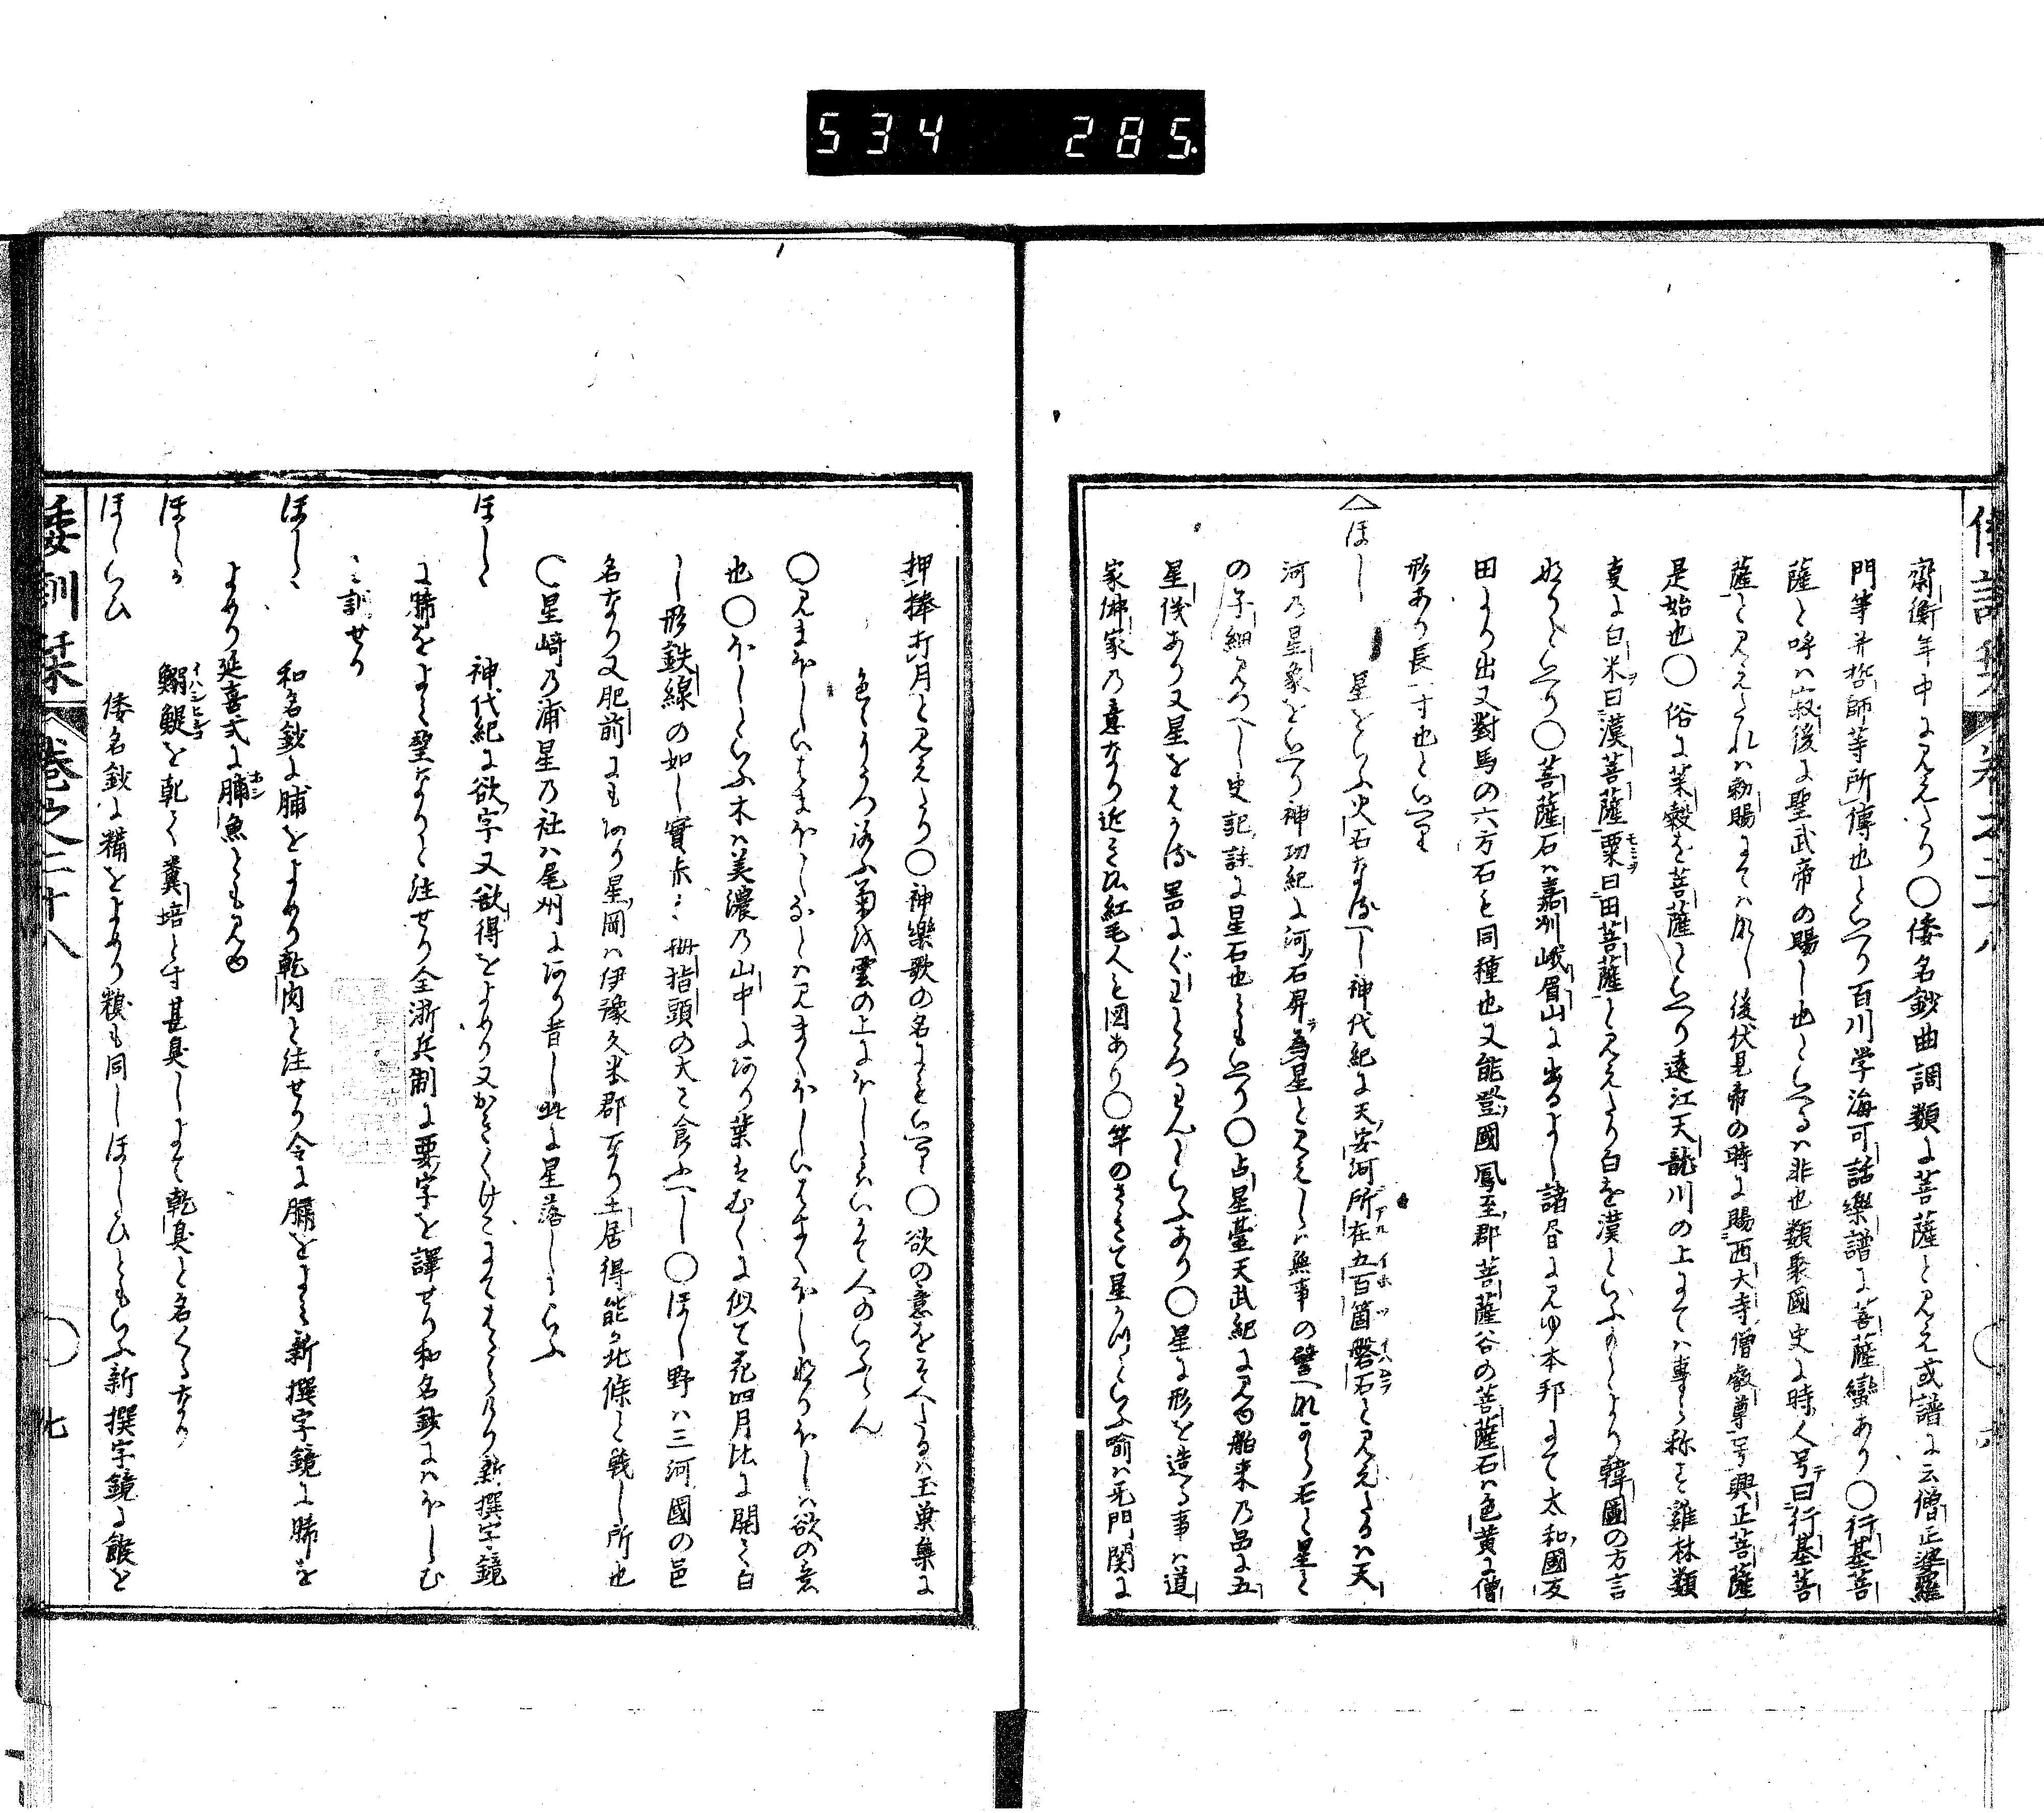 534 285
齋衡年中に見えたり○倭名鈔曲調類に菩薩と見え或譜に云僧正婆羅
門等并哲師等所傳也といへり百川学海可話樂譜に菩薩蠻あり○行基菩
薩と呼ハ寂後に聖武帝の賜し也といへるハ非也類聚國史に時人号テ曰行基菩
薩と見えたれハ勅賜にてハなし後伏見帝の時に賜西大寺僧叡尊号興正菩薩
是始也○俗に菜穀を菩薩といへり遠江天龍川の上にてハ專ら称す雞林類
夐に白米ヲ曰漢菩薩粟モミヲ曰田菩薩と見えたり白を漢といふのしより韓國の方言
なりといへり○菩薩石ハ嘉州峨眉山に出るよし諸書に見ゆ本邦にて太和國友
田より出又對馬の六方石も同種也又能登國鳳至郡菩薩谷の菩薩石ハ色黄に僧
形あり長一寸也といへり
△ほし 星をいふ火石なるへし神代紀に天安河所在五百箇磐石と見えたるハ天
河乃星象をいへり神功紀に河石昇ラ為星と見えしハ無事の譬へなから石を星と
の子細見つへし史記註に星石也ともいへり○占星臺天武紀に見ゆ舶来乃品に五
星儀あり又星をはかる器にぐわとろわんといふあり○星に形を造る事ハ道
家佛家乃意なり近き比紅毛人も図あり○竿のさきて星かつといふ喩ハ无門関に
押棒打月と見えたり○神樂歌の名にもいへり○欲の意をそへたるハ玉菓集に
色々うつろふ菊を雲の上にほしとハいかて人のいふらん
○見まほしいはまほしなとハ見まくほしいはまくほしなりほしハ欲の意
也○ほしといふ木ハ美濃乃山中にあり葉はむくに似て花四月比に開く白
し形鉄線の如し實赤く拇指頭の大さ食ふへし○ほし野ハ三河國の邑
名なり又肥前にもあり星岡ハ伊豫久米郡なり土居得能か北條と戦し所也
○星崎乃浦星乃社ハ尾州にあり昔し此に星落しといふ
ほしく 神代紀に欲字又欲得をよめり又かさくけこにてはたらけり新撰字鏡
に睎をよく望なりと注せり全浙兵制に要字を譯せり和名鈔にハほしむ
と訓せり
ほしし 和名鈔に脯をよめり乾肉と注せり令に腊をよみ新撰字鏡に睎を
よめり延喜式に脯ホシ魚とも見ゆ
ほしか 鰯鯷を乾て糞培と寸甚臭しよて乾臭と名くるなり
ほしいひ 倭名鈔に糒をよめり糗も同しほしひともいふ新撰字鏡に餱を
倭訓栞 巻之二十八